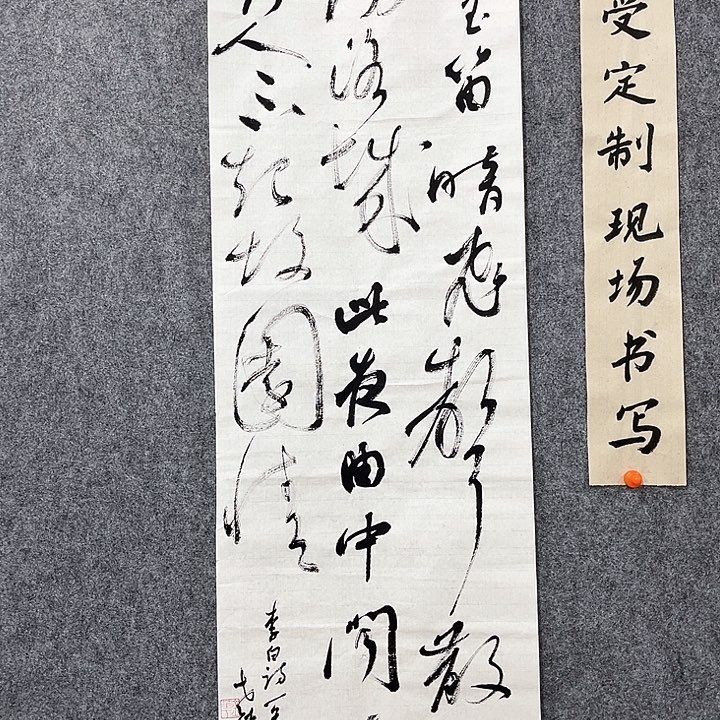 受定制现场书写
玉笛暗飛聲散
洛城此夜曲中闻
人不起故園情
李白诗一